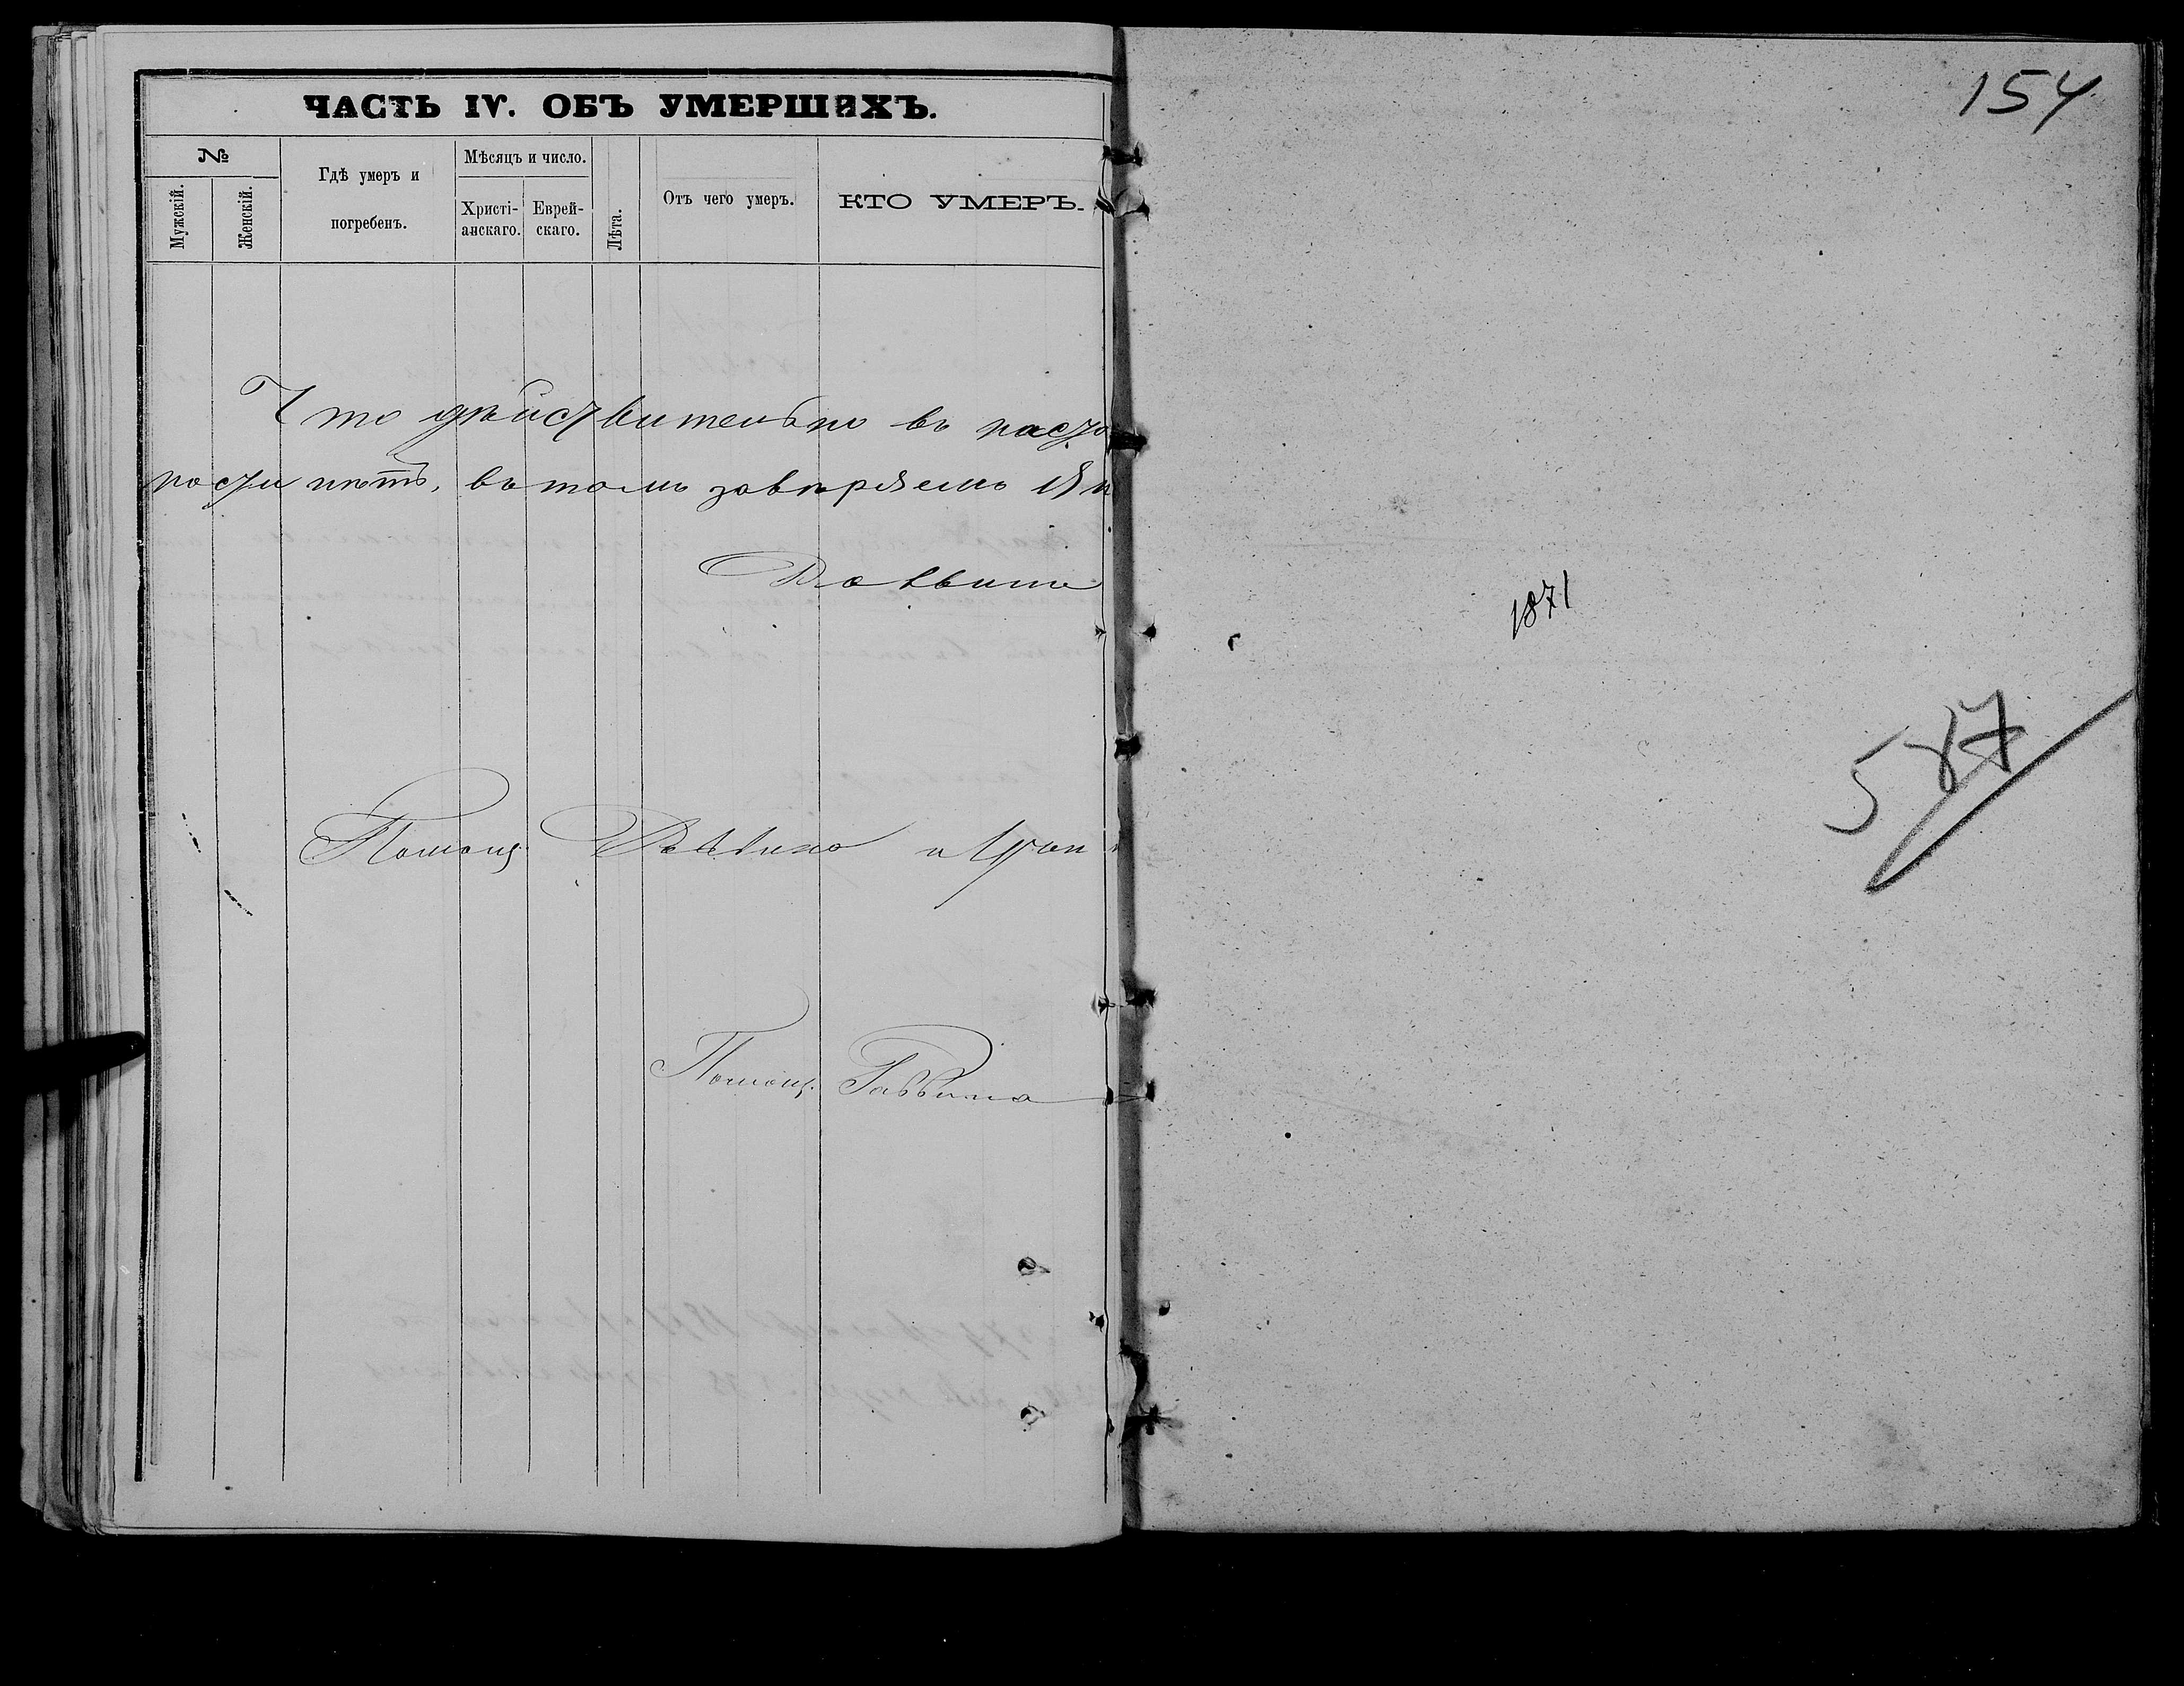 ЧАСТЬ IV. ОБЪ УМЕРШИХЪ.
№
Мужскій.
Женскій.
Гдѣ умеръ и
погребенъ.
Мѣсяцъ и число.
Христі-
анскаго.
Еврей-
скаго.
Лѣта.
Отъ чего умеръ.
КТО УМЕРЪ.
Что дѣйствительно въ насто
ности нѣтъ, въ томъ завѣряемъ
Помощ.
Помощ. Раввина
154
1871
587